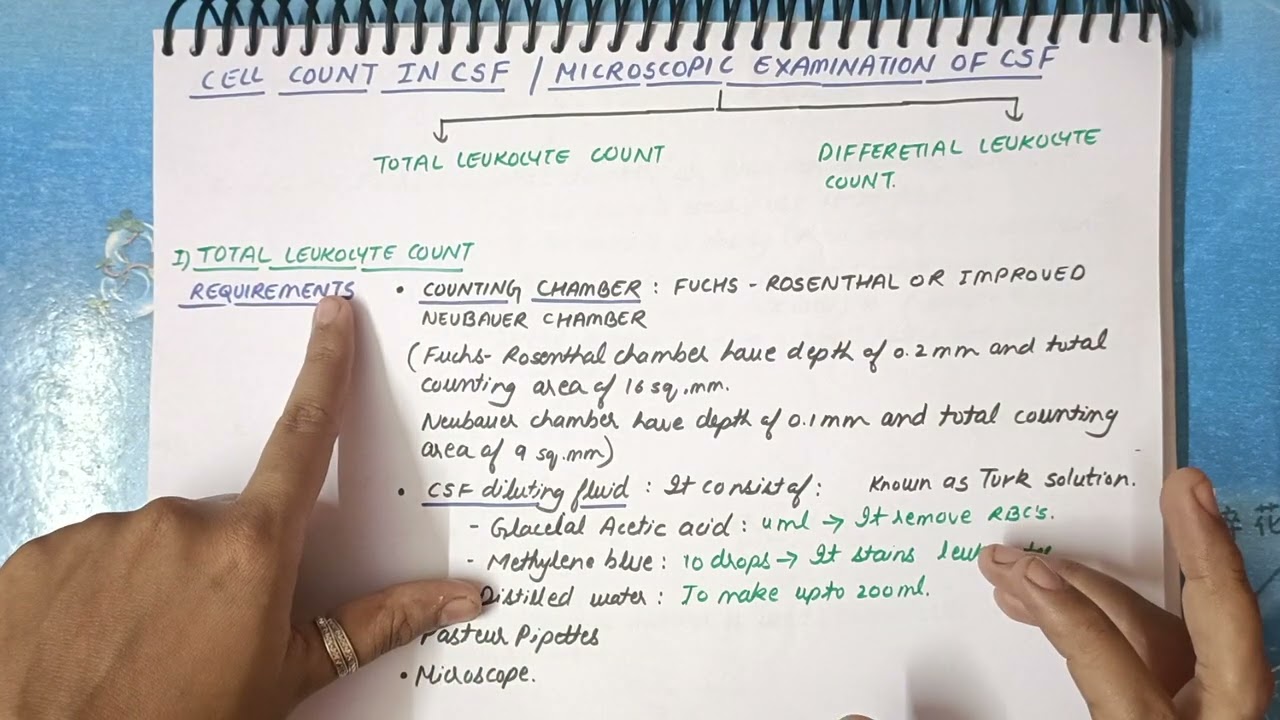 CELL COUNT IN CSF / MICROSCOPIC EXAMINATION OF CSF
TOTAL LEUKOLYTE COUNT
DIFFERETIAL LEUKOLYTE
COUNT.
I) TOTAL LEUKOLYTE COUNT
REQUIREMENTS
• COUNTING CHAMBER : FUCHS - ROSENTHAL OR IMPROVED
NEUBAUER CHAMBER
(Fuchs- Rosenthal chamber have depth of 0.2 mm and total
counting area of 16 sq.mm.
Neubauer chamber have depth of 0.1mm and total counting
area of 9 sq.mm)
• CSF diluting fluid : It consist of : Known as Turk solution.
- Glacelal Acetic acid : 4ml → It remove RBC's.
- Methylene blue : 10 drops → It stains
Distilled water : To make upto 200ml.
Pasteur Pipettes
• Microscope.